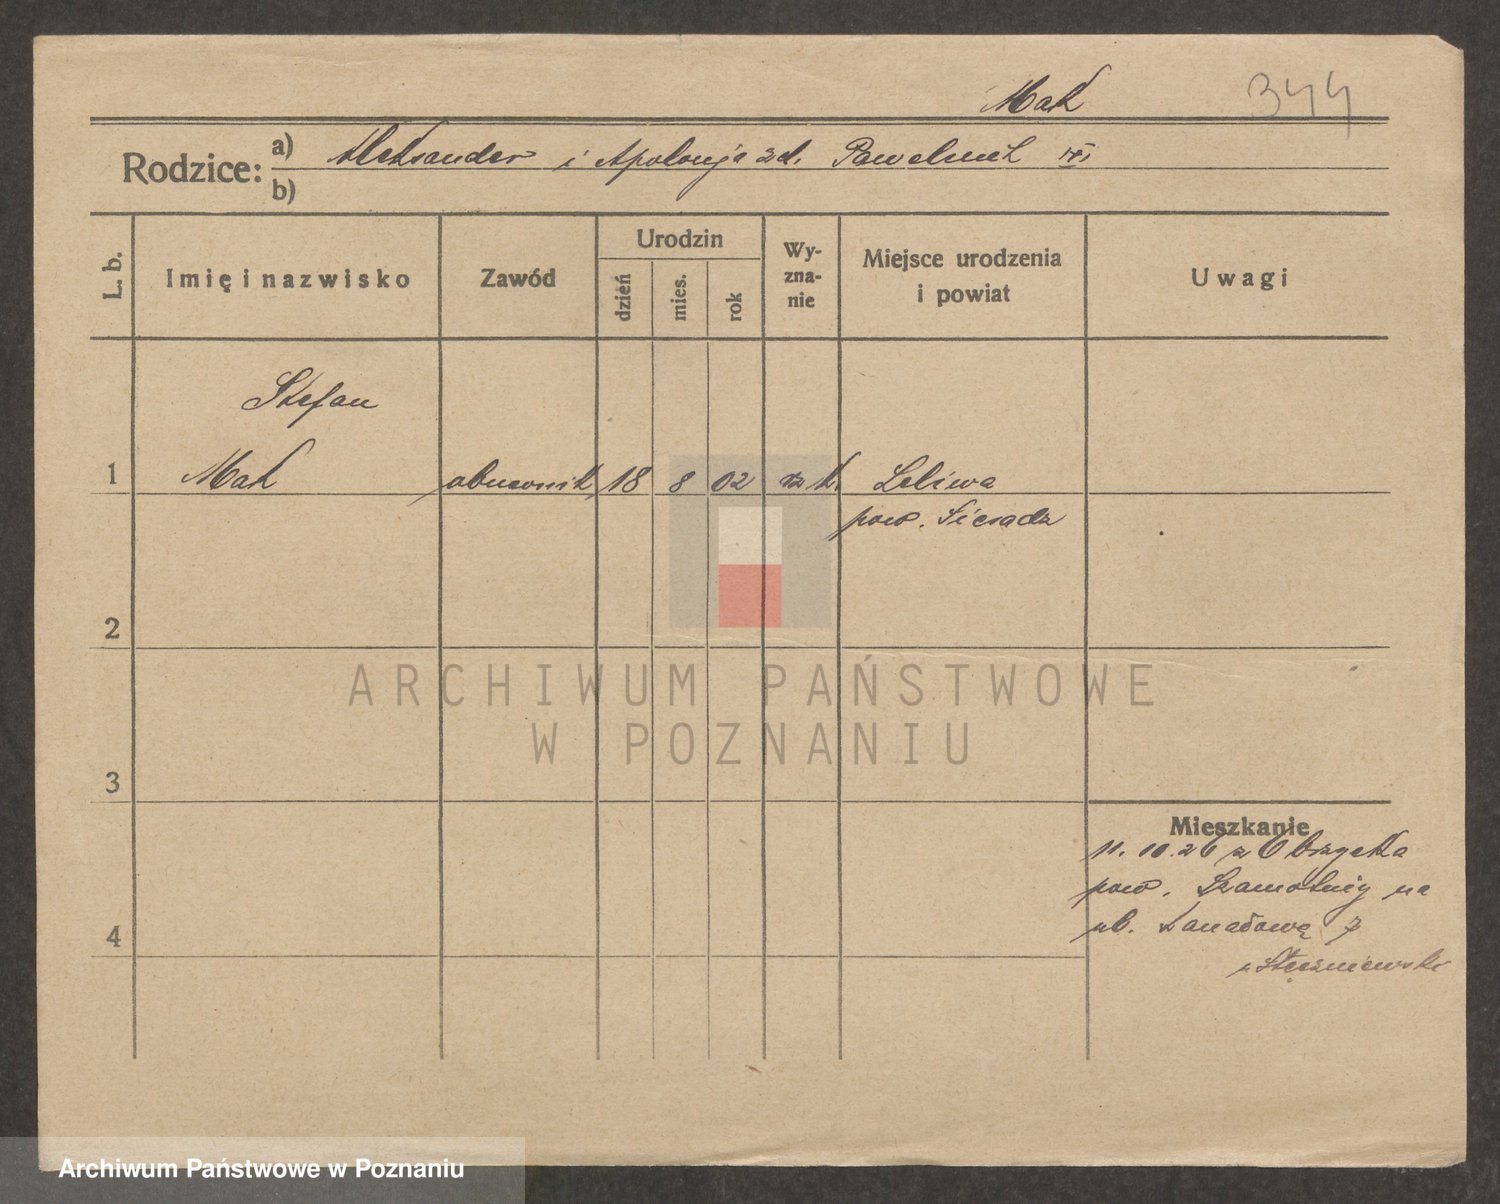 Mak 344
Rodzice: a) Aleksander i Apolonja zd.
b)
L. b.
Imię i nazwisko
Zawód
Urodzin
dzień
mies.
rok
Wy-
zna-
nie
Miejsce urodzenia
i powiat
Uwagi
Stefan
1 Mak 18 8 02 rz k. Leliwa
pow. Sieradz
2
ARCHIWUM PAŃSTWOWE
W POZNANIU
3
Mieszkanie
11. 10. 26 z Obrzycka
pow. Szamotuły na
ul. 7
4
Archiwum Państwowe w Poznaniu